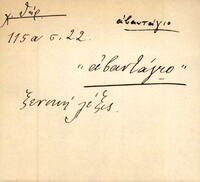 χ. Θήρ. ἀβαντάγιο
115α σ. 22.
"ἀβαντάγιο"
ξενική λέξις.